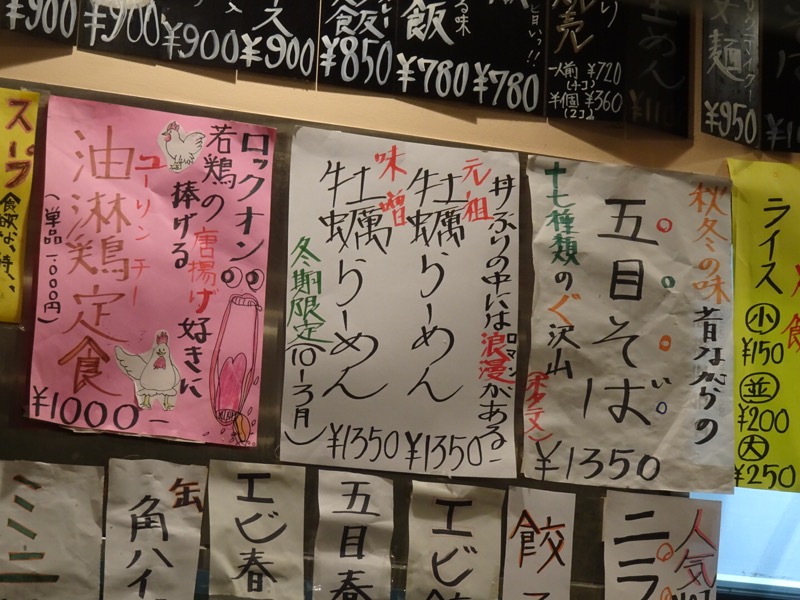 ¥900
¥900
¥900
¥900
¥850
飯
¥780
¥780
一人前 ¥720
半個 ¥360
麺
¥950
スープ
ロックオン
若鶏の唐揚げ好きに
捧げる
ユーリンチー
油淋鶏定食
(単品1000円)
¥1000-
丼ぶりの中には浪漫がある
ロマン
元祖
牡蠣らーめん
¥1350
味噌
牡蠣らーめん
¥1350
冬期限定(10-3月)
秋冬の味
昔ながらの
五目そば
十七種類のぐ沢山
¥1350
ライス
小
¥150
並
¥200
大
¥250
ミニ
缶
角ハイ
エビ春
五目春
エビ
餃
人気
ニラ